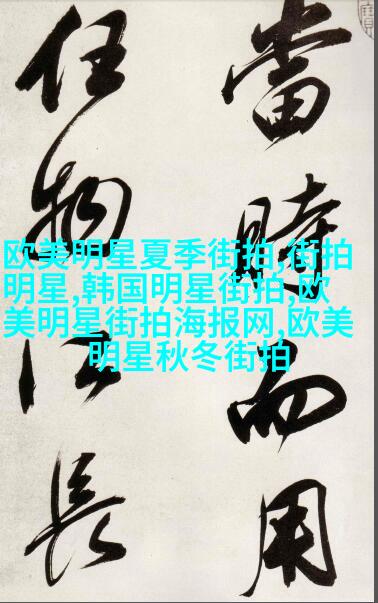 當時而用
任物以長
欧美明星夏季街拍,街拍
明星,韩国明星街拍,欧
美明星街拍海报网,欧美
明星秋冬街拍